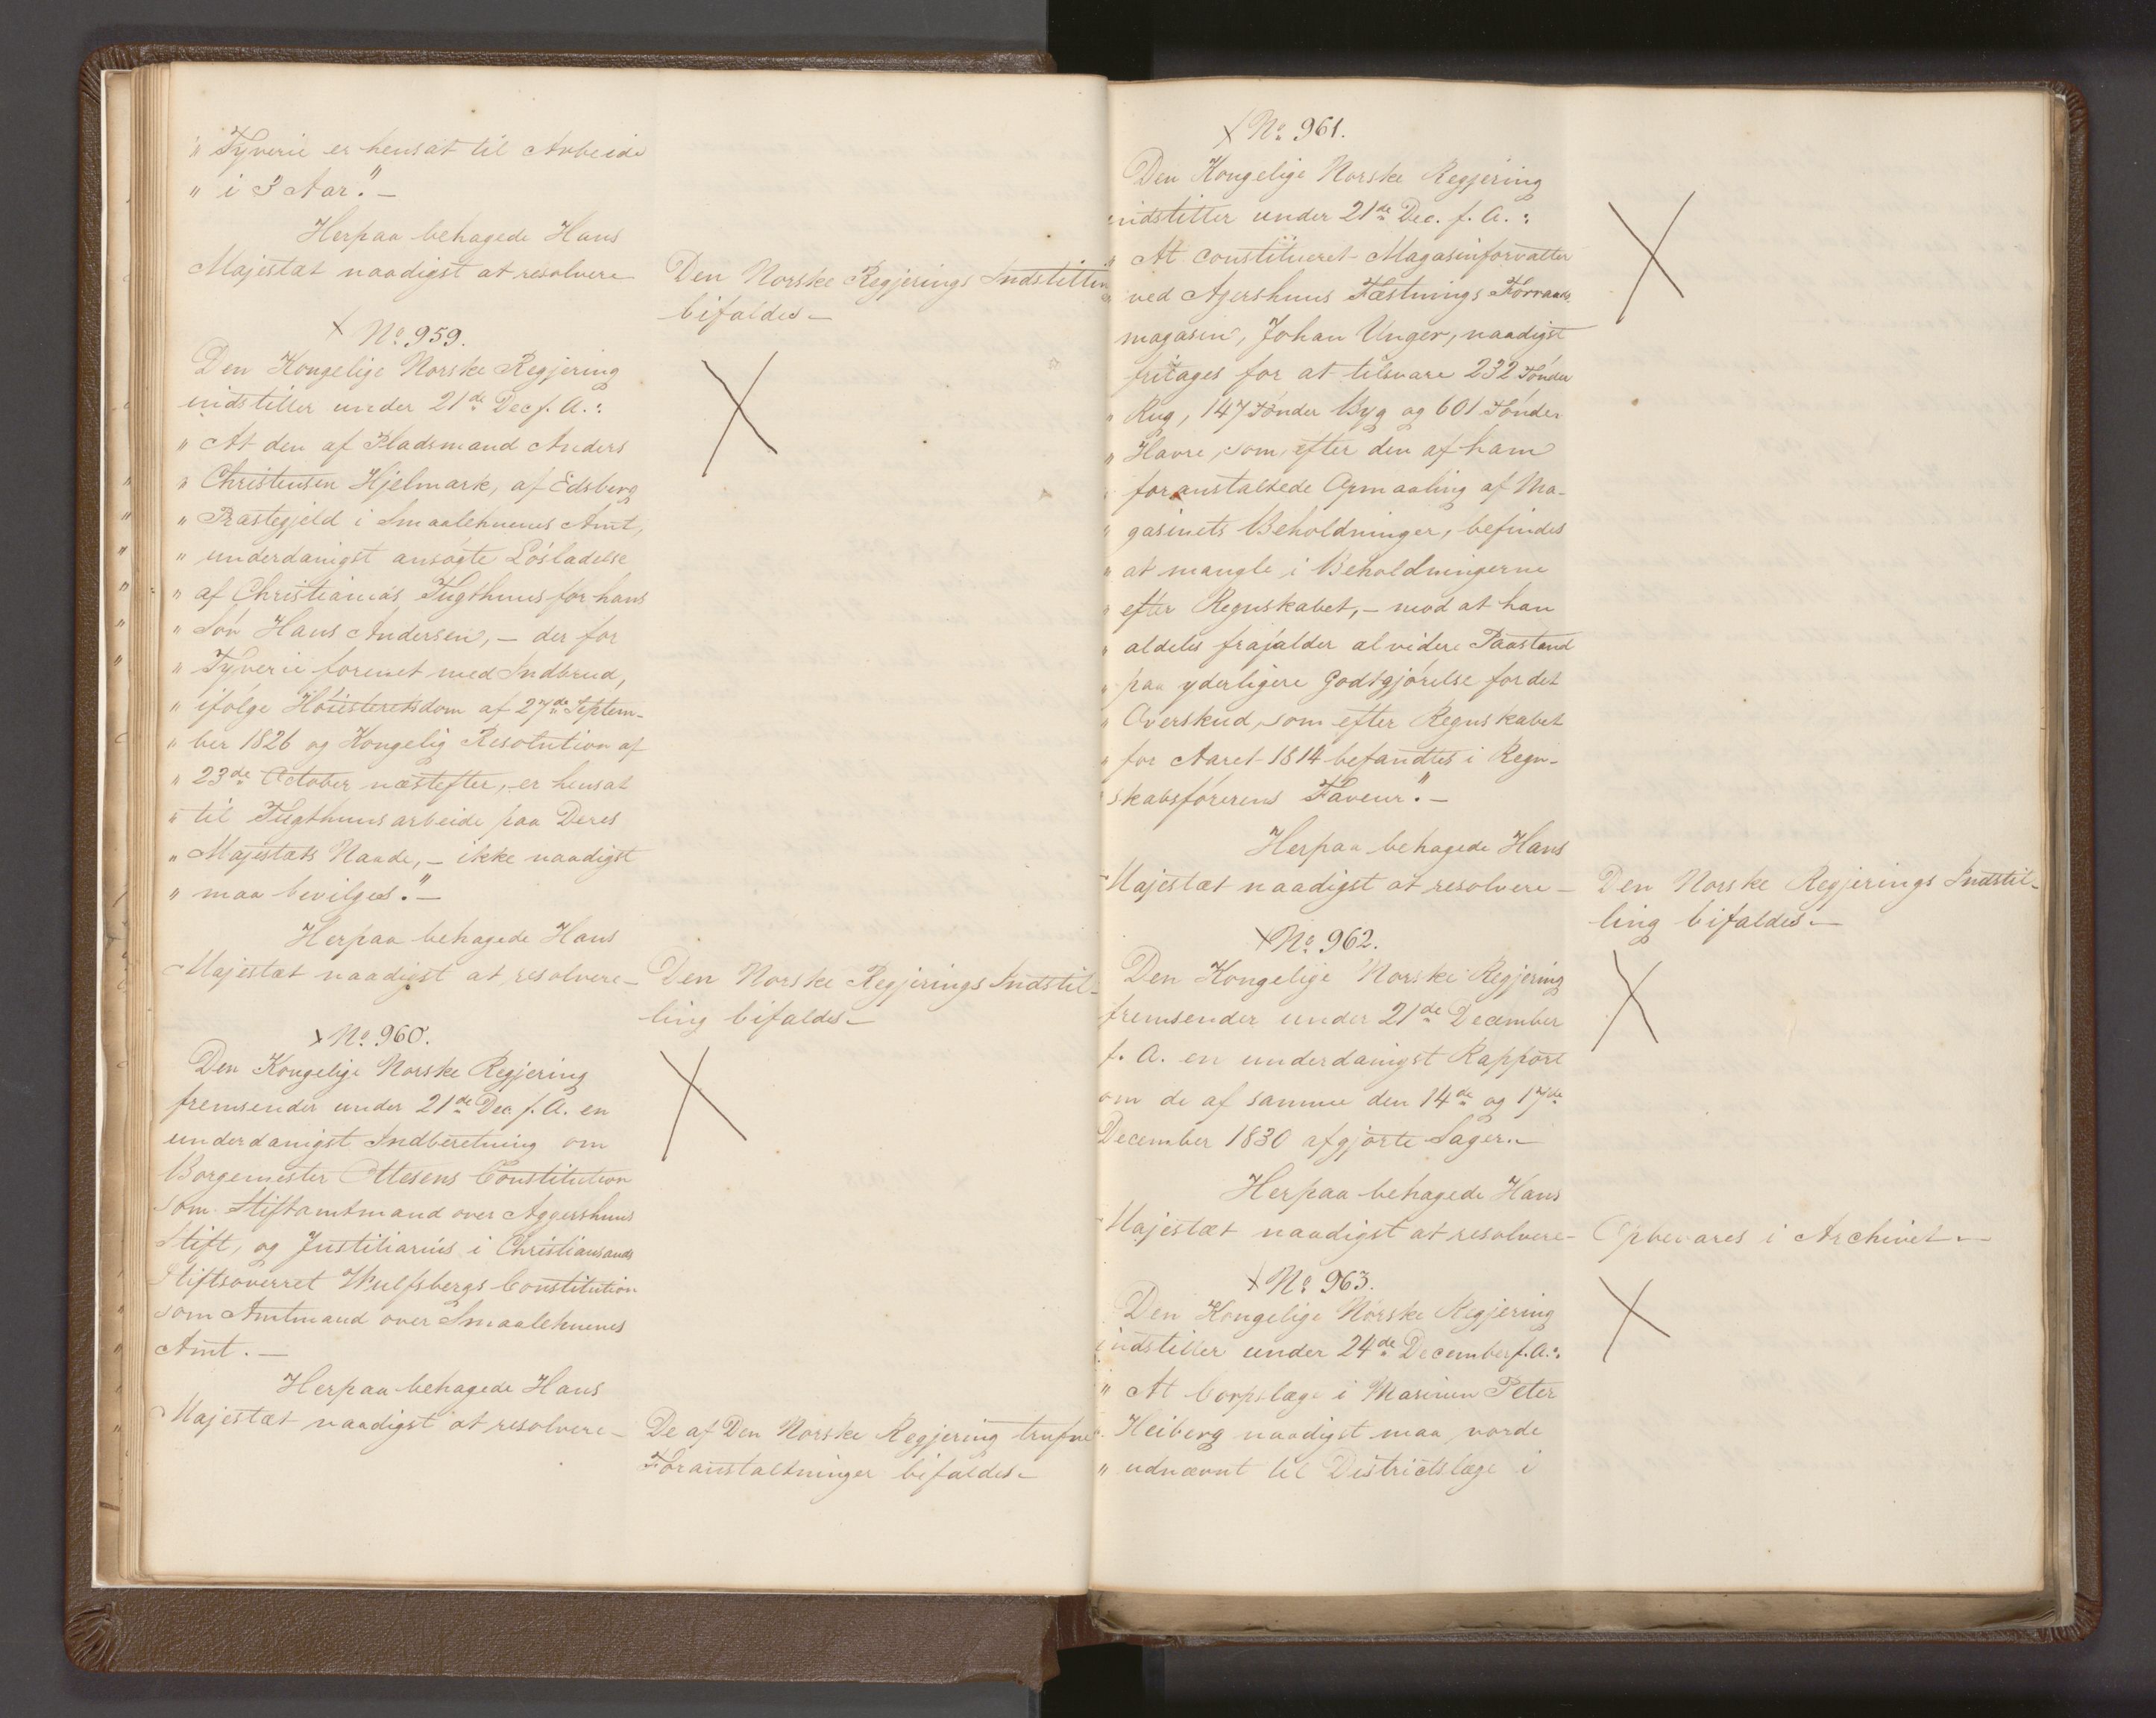 " Tyverie er hensat til Arbeide
" i 3 Aar." –
Herpaa behagede Hans
Majestæt naadigst at resolvere
Den Norske Regjerings Indstilling
bifaldes –
No 959.
Den Kongelige Norske Regjering
indstiller under 21de Dec f. A.:
" At den af Pladsmand Anders
" Christensen Hjelmark, af Edsberg
" Præstegjeld i Smaalehnenes Amt,
" underdanigst ansøgte Løsladelse
" af Christiania's Tugthuus for hans
" Søn Hans Andersen, – der for
" Tyverie forenet med Indbrud,
" ifølge Høiesteretsdom af 27de Septem-
" ber 1826 og Kongelig Resolution af
" 23de October næstefter, er hensat
" til Tugthuusarbeide paa Deres
" Majestæts Naade, – ikke naadigst
" maa bevilges." –
Herpaa behagede Hans
Majestæt naadigst at resolvere –
Den Norske Regjerings Indstil-
ling bifaldes –
No 960.
Den Kongelige Norske Regjering
fremsender under 21de Dec. f. A. en
underdanigst Indberetning om
Borgemester Ottesens Constitution
som Stiftamtmand over Aggershuus
Stift, og Justitiarius i Christiansands
Stiftsoverret Wulfsbergs Constitution
som Amtmand over Smaalehnenes
Amt. –
Herpaa behagede Hans
Majestæt naadigst at resolvere –
De af Den Norske Regjering trufne
Foranstaltninger bifaldes –
No 961.
Den Kongelige Norske Regjering
indstiller under 21de Dec. f. A.:
" At constitueret Magasinforvalter
" ved Agershuus Fæstnings Forraads
magasin, Johan Unger, naadigst
fritages for at tilsvare 232 Tønder
" Rug, 147 Tønder Byg og 601 Tønder
" Havre, som, efter den af ham
" foranstaltede Opmaaling af Ma-
" gasinets Beholdninger, befindes
" at mangle i Beholdningerne
" efter Regnskabet, – mod at han
" aldeles frafalder al videre Paastand
" paa yderligere Godtgjørelse for det
" Overskud, som efter Regnskabet
" for Aaret 1814 befandtes i Regn-
" skabsførerens Faveur." –
Herpaa behagede Hans
Majestæt naadigst at resolvere –
Den Norske Regjerings Indstil-
ling bifaldes –
No 962.
Den Kongelige Norske Regjering
fremsender under 21de December
f. A. en underdanigst Rapport
om de af samme den 14de og 17de
December 1830 afgjorte Sager. –
Herpaa behagede Hans
Majestæt naadigst at resolvere –
Opbevares i Archivet –
No 963.
Den Kongelige Norske Regjering
indstiller under 24de December f. A.:
" At Corpslæge i Marinen Peter
" Heiberg naadigst maa vorde
" udnævnt til Districtslæge i